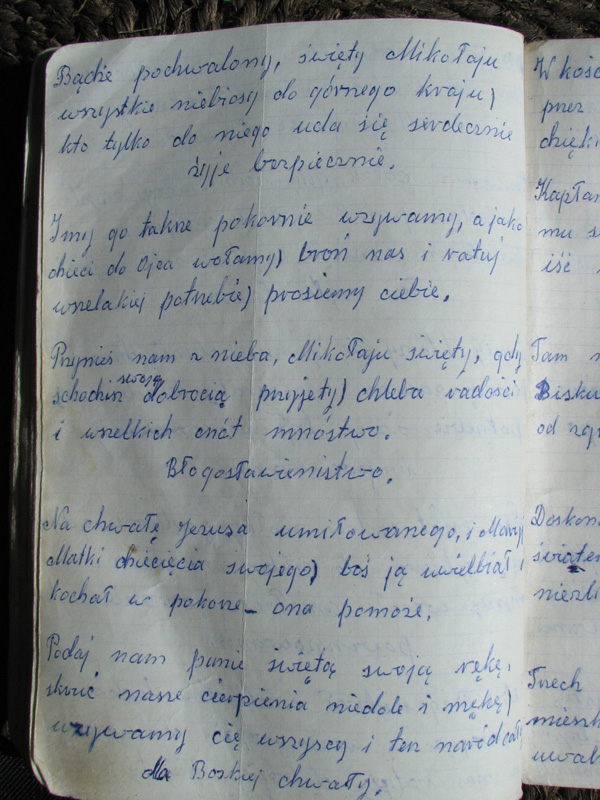 Bądźe pochwalony, święty Mikołaju
wszystkie niebiosy do górnego kraju)
kto tylko do niego uda się serdecznie
żyje bezpiecznie.
I my go także pokornie wzywamy, a jako
dzieci do Ojca wołamy) broń nas i ratuj
wszelakiej potrzebie) prosiemy ciebie.
Przynieś nam z nieba, Mikołaju święty, gdy
schodzisz swoją dobrocią przyjęty) chleba radości
i wszelkich cnót mnóstwo.
Błogosławieństwo.
Na chwałę Jezusa umiłowanego, i Maryji
Matki dziecięcia swojego) boś ją uwielbiał i
kochał w pokorze – ona pomoże.
Podaj nam panie świętą swoją rękę,
skróć nasze cierpienia niedole i mękę)
wzywamy cię wszyscy i ten naród cały
dla Boskiej chwały.
W kośc
przez
dzięki
Kapłan
mu s
iść
Tam
Bisku
od
Doskon
świąten
niezli
Trzech
mieszk
uwal